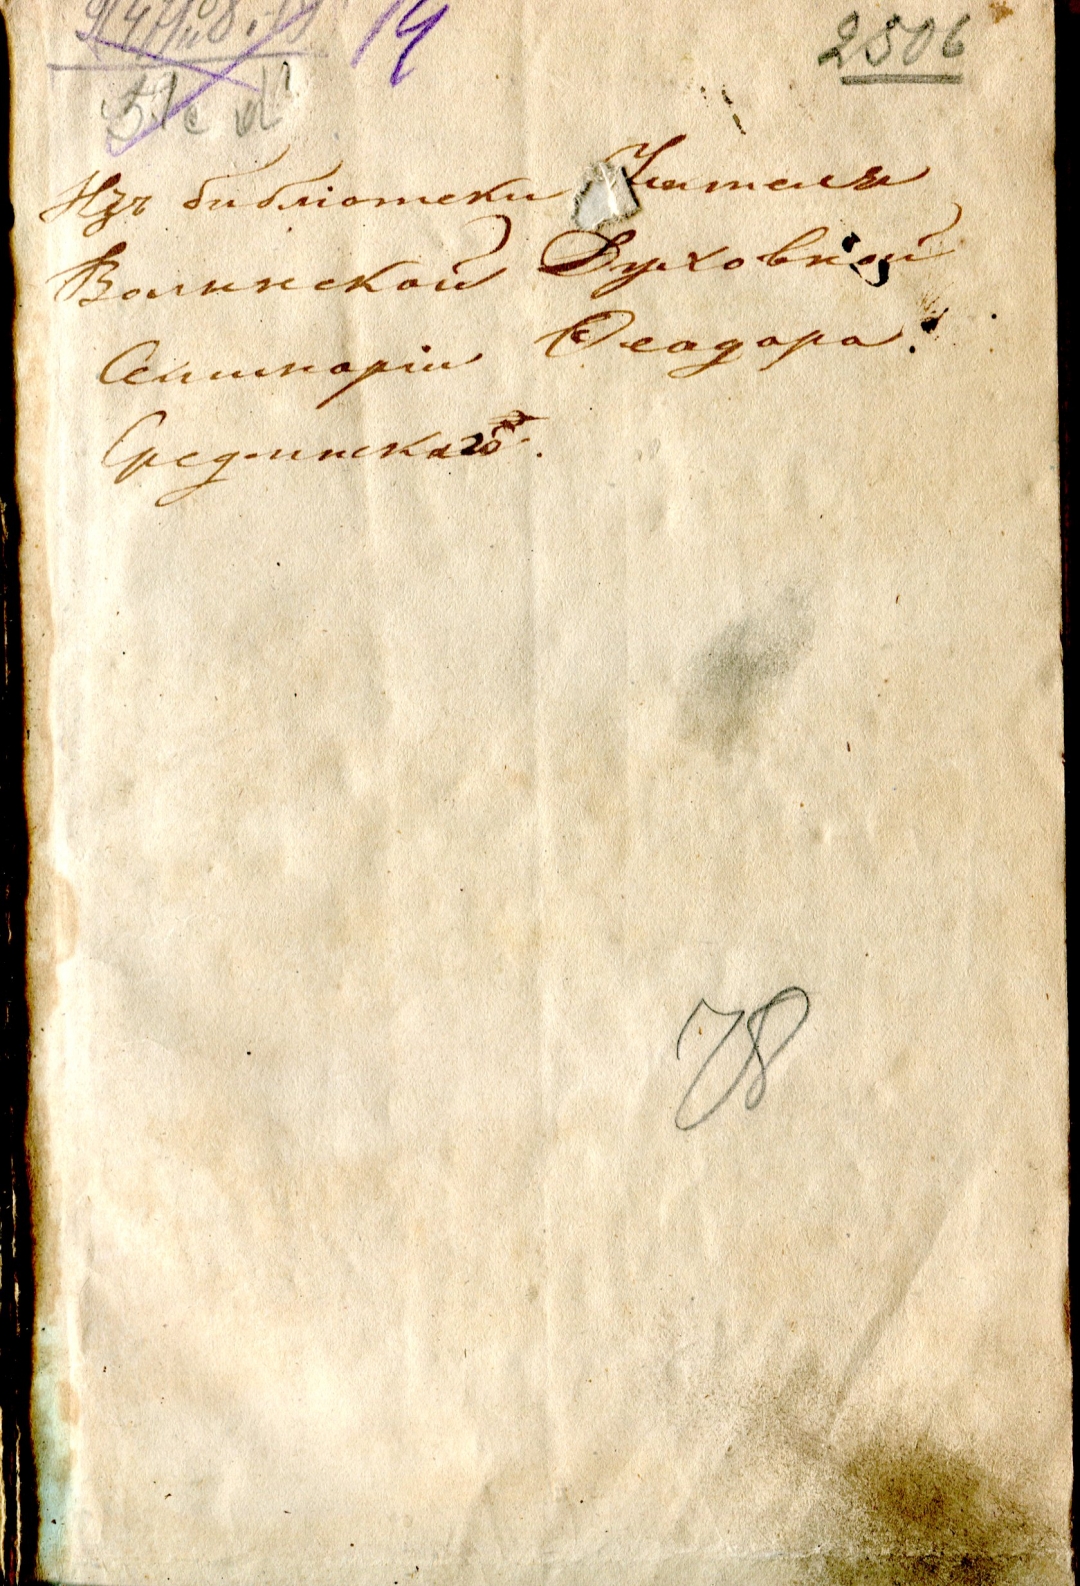 19
2506
Изъ библіотеки Учителя
Волынской Духовной
Семинаріи Ѳеодора
Срединскаго.
78